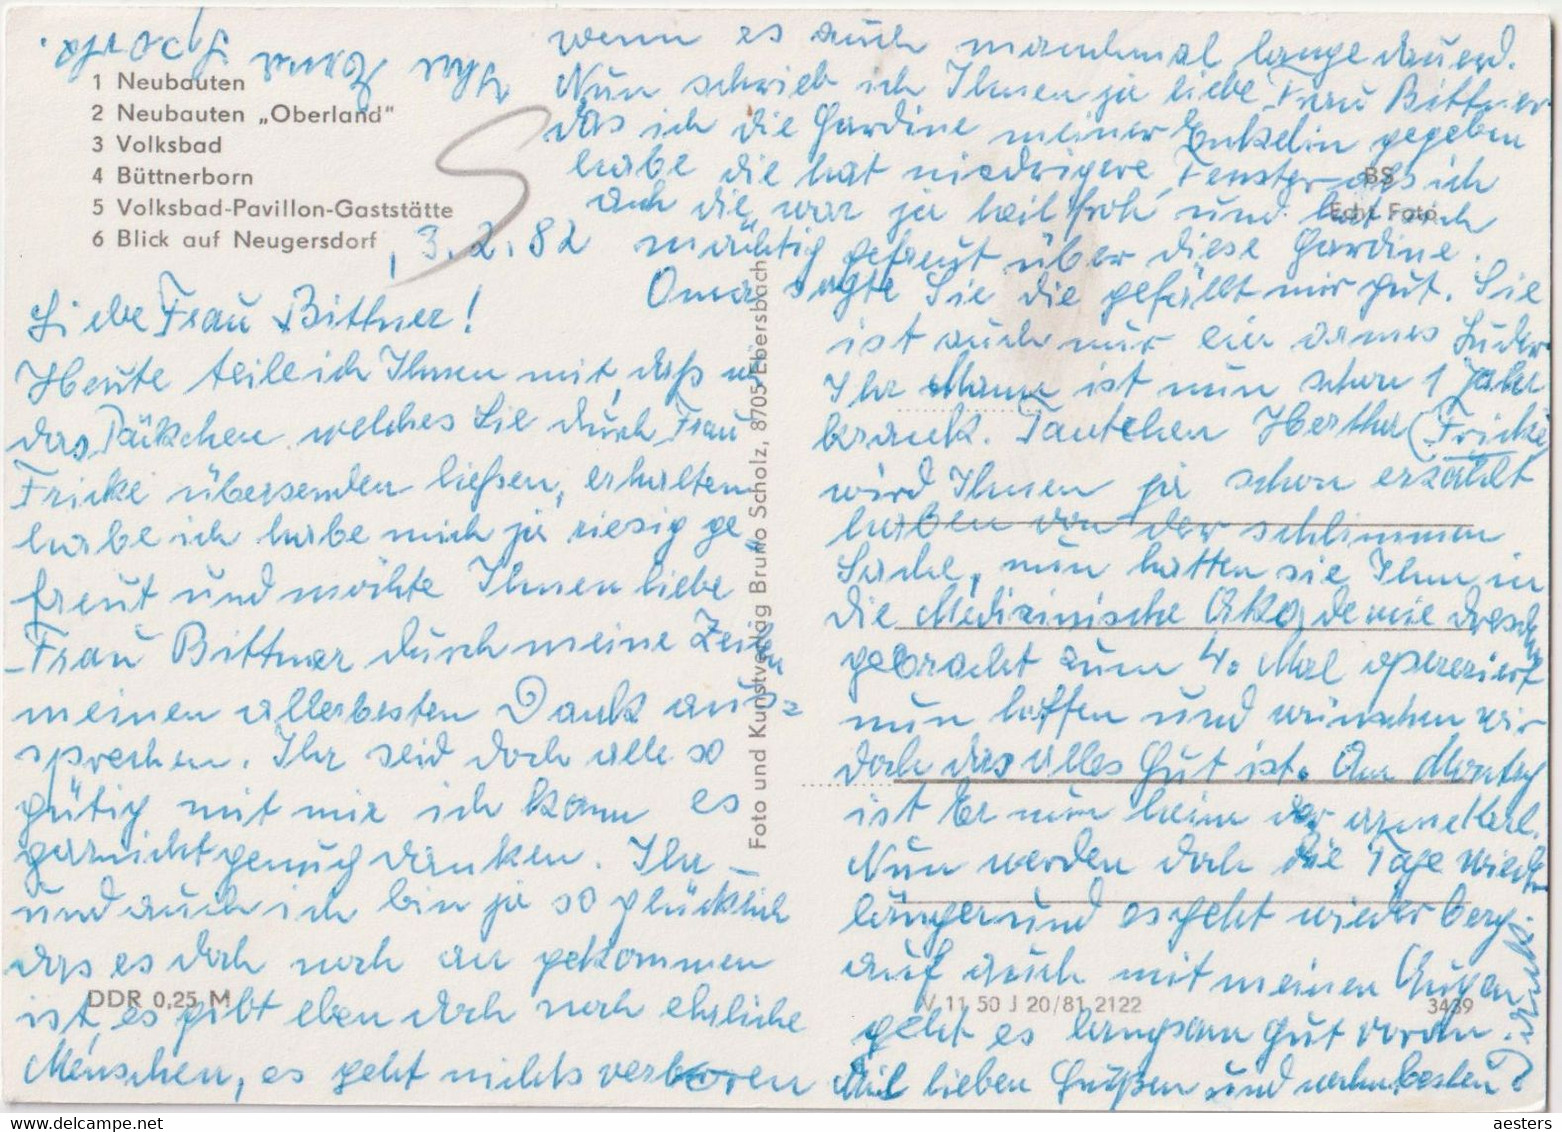 1 Neubauten
2 Neubauten „Oberland“
3 Volksbad
4 Büttnerborn
5 Volksbad-Pavillon-Gaststätte
6 Blick auf Neugersdorf
3.2.82
Liebe Frau Bittner!
Heute teile ich Ihnen mit, daß
das Päkchen welches Sie durch Frau
Fricke übersenden ließen, erhalten
habe ich habe mich ja riesig ge„
freut und möchte Ihnen liebe
Frau Bittner durch meine Zeilen
meinen allerbesten Dank aus=
sprechen. Ihr seid doch alle so
gütig mit mir ich kann es
garnicht genug danken. Ihr
und auch ich bin ja so glücklich
das es doch noch an gekommen
ist, es gibt eben doch noch ehrliche
Menschen, es geht nichts verloren
wenn es auch manchmal lange dauerd.
Nun schrieb ich Ihnen ja liebe Frau Bittner
das ich die Gardine meiner Enkelin gegeben
habe die hat niedrigere Fenster als ich
ach die war ja heilfroh und hat sich
mächtig gefreut über diese Gardine.
Oma sagte Sie die gefällt mir gut. Sie
ist auch nur ein armes Luder
Ihr Mann ist nun schon 1 Jahr
krank. Tantchen Hertha (Fricke)
wird Ihnen ja schon erzählt
haben von der schlimmen
Sache, nun hatten sie Ihn in
die Medizinische Akademie Dresden
gebracht zum 4. Mal opereriert
nun hoffen und wünschen wir
doch das alles Gut ist. Am Montag
ist Er nun heim der arme Kerl.
Nun werden doch die Tage wieder
länger und es geht wieder berg„
auf auch mit meinen Augen
geht es langsam gut voran.
Mit lieben Grüßen und nochmals besten
Dank
Foto und Kunstverlag Bruno Scholz, 8705 Ebersbach
BS
Echt Foto
DDR 0,25 M
V 11 50 J 20/81 2122
3439
aesters